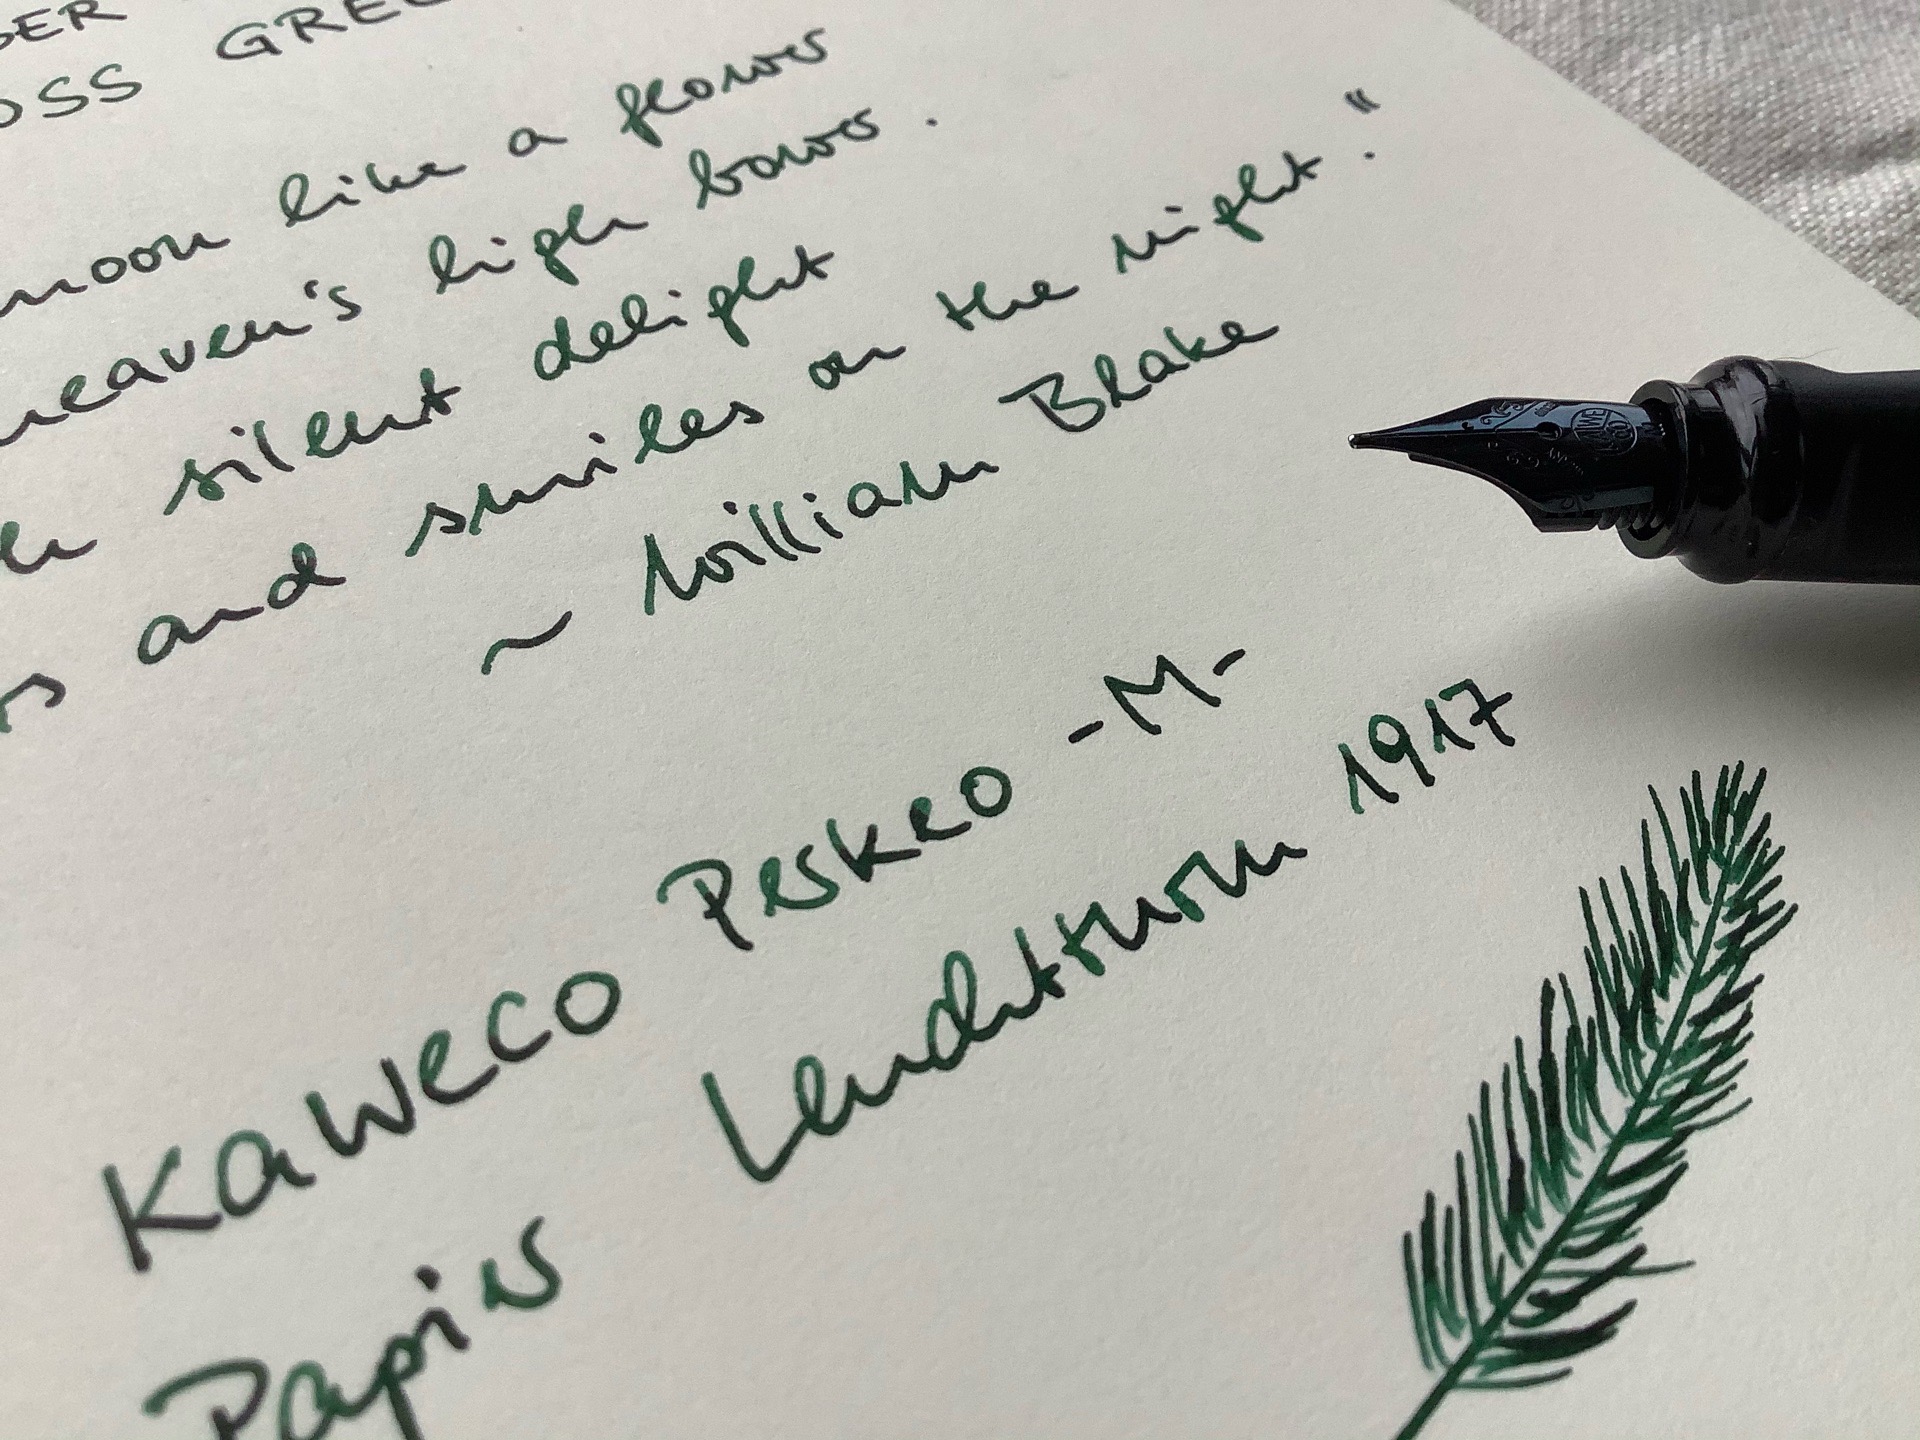 DER
OSS GREE
moon like a flower
heaven's high bower.
silent delight
and smiles on the night."
~ William Blake
Kaweco Perkeo -M-
Papier Leuchtturm 1917